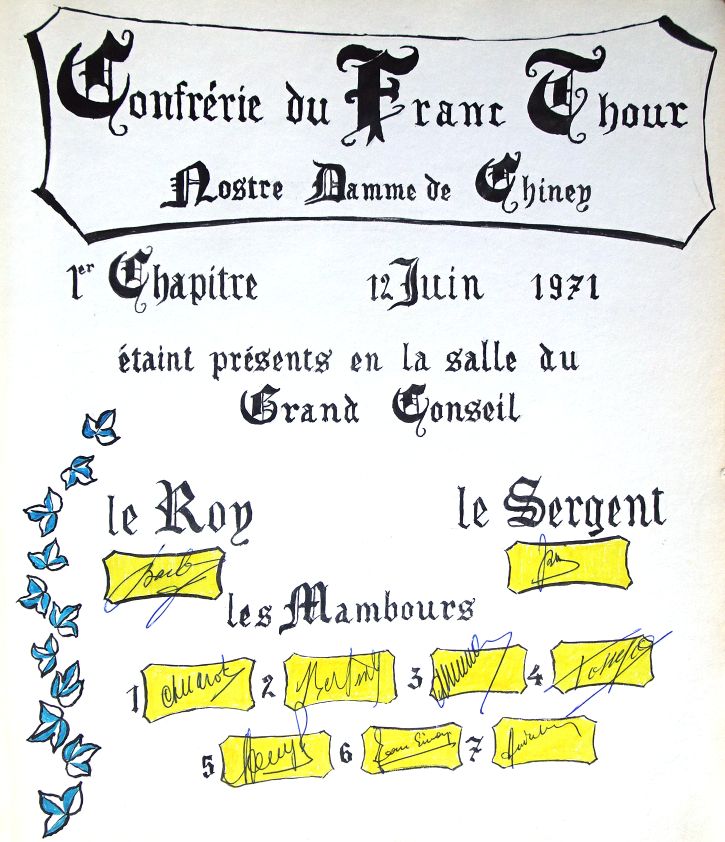 Confrérie du Franc Thour
Nostre Damme de Chiney
1er Chapitre 12 Juin 1971
étaint présents en la salle du
Grand Conseil
le Roy le Sergent
les Mambours
1 2 3 4
5 6 7